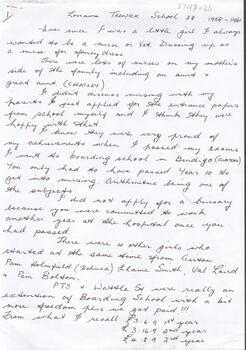 3797.26
Lorraine Trewer School 38 1958-1961
Ever since I was a little girl I always
wanted to be a nurse or Vet. Dressing up as
a nurse for fancy dress.
There were lots of nurses on my mother's
side of the family including an aunt &
great aunt
I didn't discuss nursing with my
parents I just applied for the entrance papers
from school myself and I think they were
happy with that.
I know they were very proud of
my achievements when I passed my exams
I went to boarding school in Bendigo (GIRTON)
You only had to have passed Year 10 to
get into nursing. Arithmetic being one of
the subjects.
I did not apply for a bursary
because you were committed to work
another year at the hospital once you
had passed.
There were 4 other girls who
started at the same time from Girton.
Pam Holmfield Elaine Smith, Val Laird
& Pam Bolton.
PTS & Wattle St were really an
extension of Boarding School with a bit
more freedom plus we got paid!!!
From what I recall £3.6.9 1st year
£3.16.9 2nd year
£4.8.9 3rd year